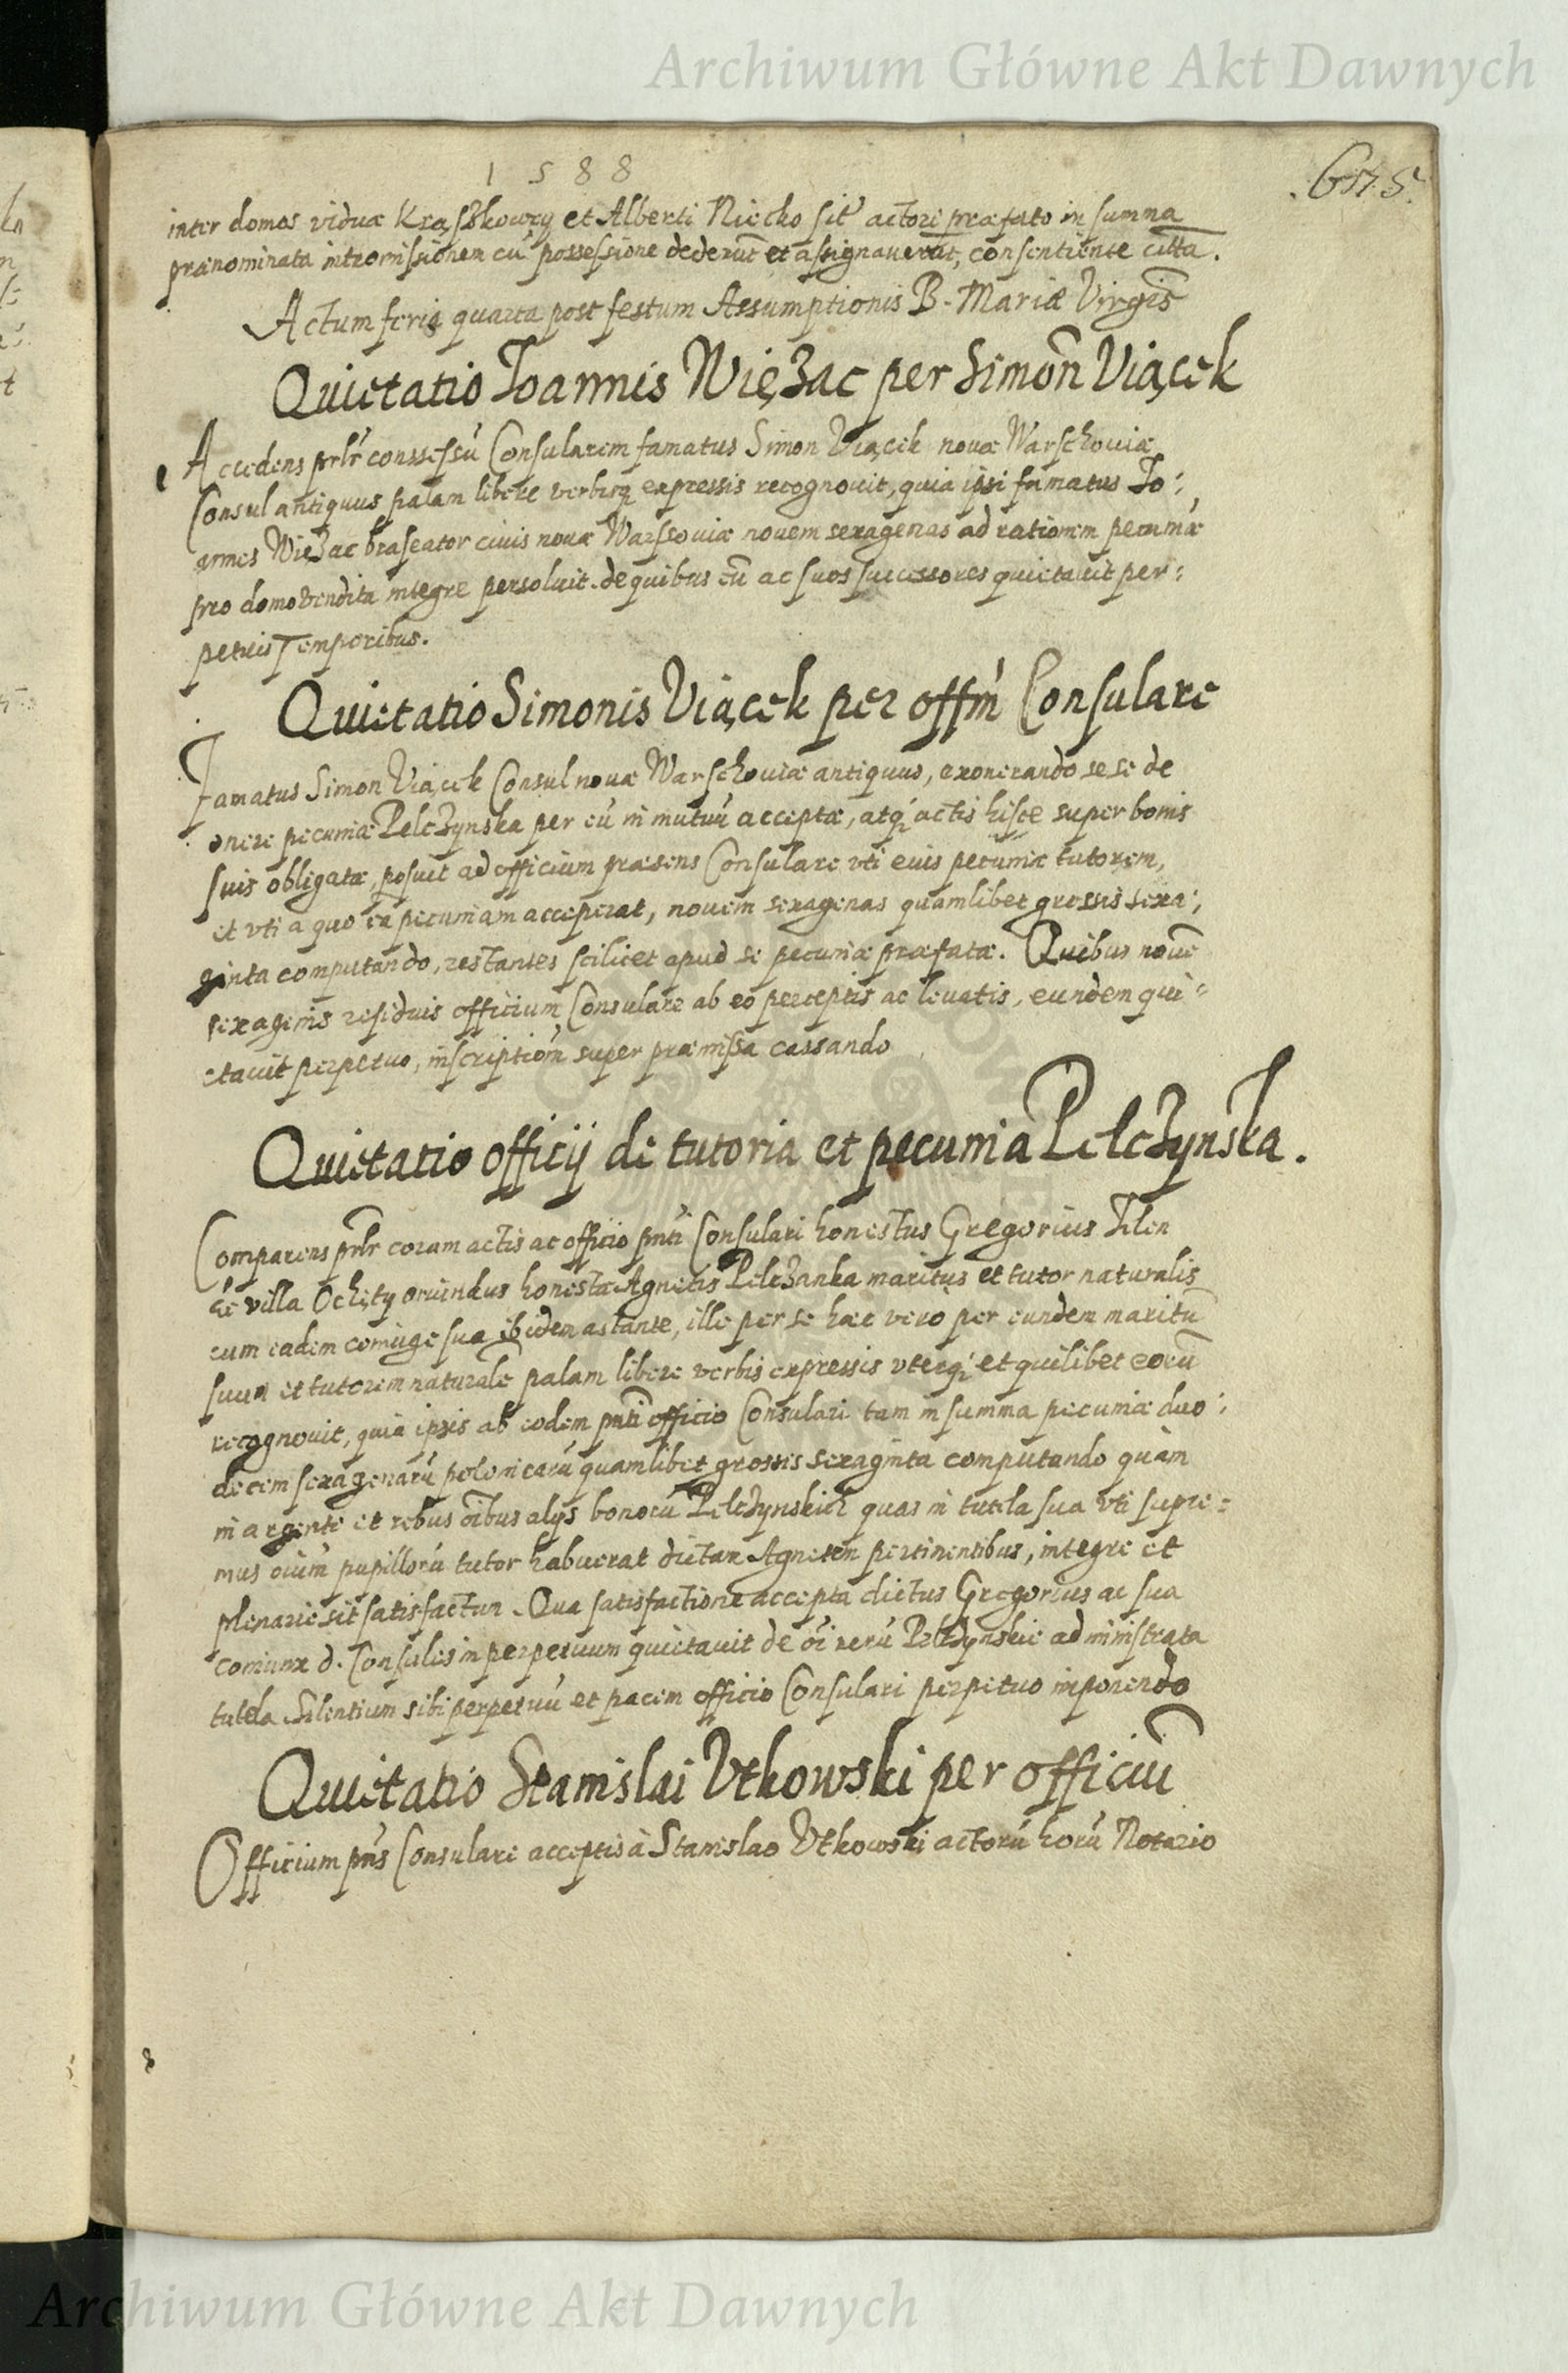 Archiwum Główne Akt Dawnych
1588
675.
inter domos viduæ Krąsskowey et Alberti Niecko sit actori præfato in summa
prænominata intromissionem cū possessione dederūt et assignaverūt, consentiente citta.
Actum feria quarta post festum Assumptionis B. Mariæ Virgis
Quietatio Joannis Więzac per Simon Viącek
Accedens prlr conssessū Consularem famatus Simon Viącek novæ Warschoviæ
Consul antiquus palam libere verbisq expressis recognovit, quia ipsi famatus Jo:
annes Wiezac braseator civis novæ Warssoviæ novem sexagenas ad rationem pecuniæ
pro domo vendita integre persolvit. de quibus eū ac suos successores quietavit per:
petuis Temporibus.
Quietatio Simonis Viącek per offm Consulare
Famatus Simon Viącek Consul novæ Warschoviæ antiquus, exonerando sese de
onere pecuniæ Pelczynska per eū in mutuū acceptæ, atq actis hisce super bonis
suis obligatæ, posuit ad officium præsens Consulare vti euis pecuniæ tutorem,
et vti a quo ea pecuniam acceperat, novem sexagenas quamlibet grossis sexa:
ginta computando, restantes scilicet apud se pecuniæ præfatæ. Quibus novē
sexagenis residuis officium Consulare ab eo perceptis ac levatis, eundem qui=
etavit perpetuo, inscriptiom super præmissa cassando
Quietatio officij de tutoria et pecunia Pelczynska.
Comparens prlr coram actis ac officio pnti Consulari honestus Gregorius Filen
de villa Ochęty oriundus honestæ Agnetis Pelczanka maritus et tutor naturalis
cum eadem coniuge sua ibidem astante, ille per se hæc vero per eundem maritū
suum et tutorem naturalē palam libere verbis expressis vterq et quilibet eorū
recognovit, quia ipsis ab eodem pnti officio Consulari tam in summa pecuniæ duo:
decem sexagenarū polonicarū quamlibet grossis sexaginta computando quàm
in argento et rebus oibus alys bonorū Pelczynskich quas in tutela sua vti supre=
mus oium pupillorū tutor habuerat dictam Agnetem pertinentibus, integre et
plenarie sit satisfactum. Qua satisfactione accepta dictus Gregorius ac sua
coniunx d. Consules in perpetuum quietavit de oi rerū Pelczynskie administrata
tutela Silentium sibi perpetuū et pacem officio Consulari perpetuo imponendo
Quietatio Stanislai Vtkowski per officiū
Officium pns Consulare acceptis à Stanislao Vtkowski actorū horū Notario
Archiwum Główne Akt Dawnych